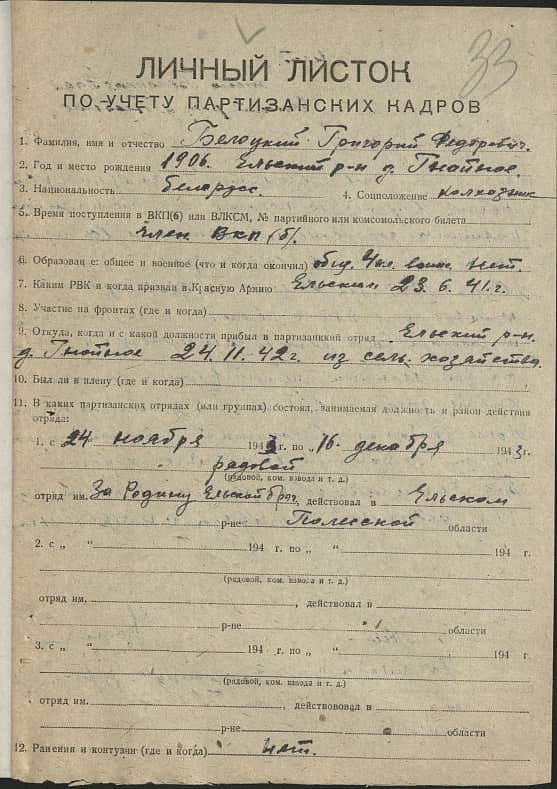 33
ЛИЧНЫЙ ЛИСТОК
ПО УЧЕТУ ПАРТИЗАНСКИХ КАДРОВ
1. Фамилия, имя и отчество Белоцкий Григорий Федорович.
2. Год и место рождения 1906. Ельский р-н д. Гнойное.
3. Национальность беларусс. 4. Соцположение колхозник
5. Время поступления в ВКП(б) или ВЛКСМ, № партийного или комсомольского билета
член ВКП(б).
6. Образование: общее и военное (что и когда окончил) общ. 4 кл. воен. нет.
7. Каким РВК и когда призван в Красную Армию Ельским 23.6.41.г.
8. Участие на фронтах (где и когда)
9. Откуда, когда и с какой должности прибыл в партизанский отряд Ельский р-н.
д. Гнойное 24.11-42г. из сель. хозяйства.
10. Был ли в плену (где и когда)
11. В каких партизанских отрядах (или группах) состоял, занимаемая должность и район действия
отряда:
1. с 24 ноября 194 г. по 16. декабря 1943 г.
рядовой
(рядовой, ком. взвода и т. д.)
отряд им. За Родину Ельской бриг, действовал в Ельском
р-не Полесской области
2. с „ “ 194 г. по „ “ 194 г.
(рядовой, ком. взвода и т. д.)
отряд им. , действовал в
р-не области
3. с „ “ 194 г. по „ “ 194 г.
(рядовой, ком. взвода и т. д.)
отряд им. , действововал в
р-не области
12. Ранения и контузии (где и когда) нет.